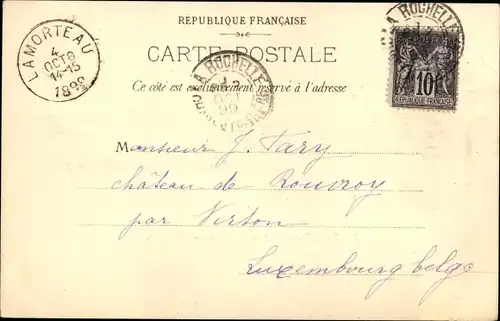 RÉPUBLIQUE FRANÇAISE
LAMORTEAU
4
OCTO
14-15
CARTE POSTALE
LA ROCHELLE
OCT
99
Ce côté est exclusivement réservé à l'adresse
LA ROCHELLE
10
REPUBLIQUE FRANÇAISE
Monsieur J. Tary
château de Rouvroy
par Virton
Luxembourg belge